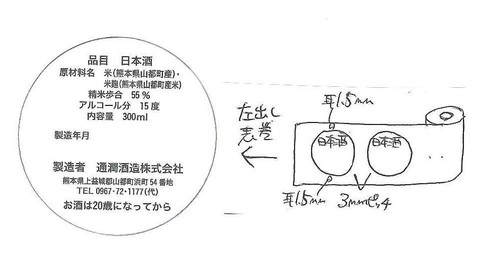 品目 日本酒
原材料名 米(熊本県山都町産)・
米麹(熊本県山都町産米)
精米歩合 55 %
アルコール分 15 度
内容量 300ml
製造年月
製造者 通潤酒造株式会社
熊本県上益城郡山都町浜町 54 番地
TEL 0967・72・1177(代)
お酒は20歳になってから
左出し
表巻
耳1.5mm
日本酒
日本酒
...
耳1.5mm
3mmピッチ